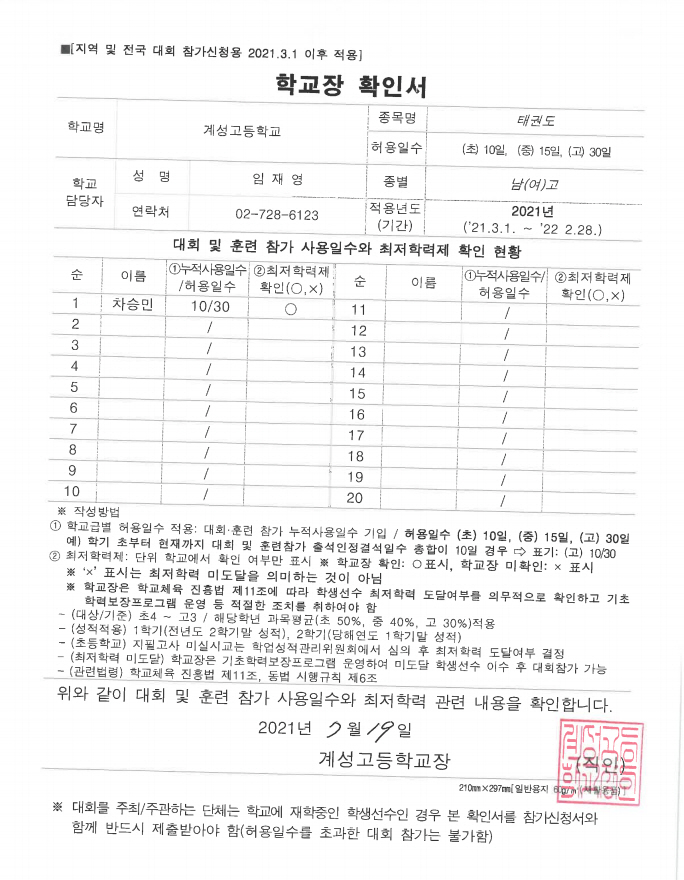 ■[지역 및 전국 대회 참가신청용 2021.3.1 이후 적용]
학교장 확인서
학교명 계성고등학교 종목명 태권도
허용일수 (초) 10일, (중) 15일, (고) 30일
학교 담당자 성 명 임 재 영 종별 남(여)고
연락처 02-728-6123 적용년도 (기간) 2021년 ('21.3.1. ~ '22 2.28.)
대회 및 훈련 참가 사용일수와 최저학력제 확인 현황
순 이름 ①누적사용일수/허용일수 ②최저학력제 확인(○,×) 순 이름 ①누적사용일수/허용일수 ②최저학력제 확인(○,×)
1 차승민 10/30 ○ 11 /
2 / 12 /
3 / 13 /
4 / 14 /
5 / 15 /
6 / 16 /
7 / 17 /
8 / 18 /
9 / 19 /
10 / 20 /
※ 작성방법
① 학교급별 허용일수 적용: 대회·훈련 참가 누적사용일수 기입 / 허용일수 (초) 10일, (중) 15일, (고) 30일
예) 학기 초부터 현재까지 대회 및 훈련참가 출석인정결석일수 총합이 10일 경우 ⇨ 표기: (고) 10/30
② 최저학력제: 단위 학교에서 확인 여부만 표시 ※ 학교장 확인: ○표시, 학교장 미확인: × 표시
※ '×' 표시는 최저학력 미도달을 의미하는 것이 아님
※ 학교장은 학교체육 진흥법 제11조에 따라 학생선수 최저학력 도달여부를 의무적으로 확인하고 기초
학력보장프로그램 운영 등 적절한 조치를 취하여야 함
- (대상/기준) 초4 ~ 고3 / 해당학년 과목평균(초 50%, 중 40%, 고 30%)적용
- (성적적용) 1학기(전년도 2학기말 성적), 2학기(당해연도 1학기말 성적)
- (초등학교) 지필고사 미실시교는 학업성적관리위원회에서 심의 후 최저학력 도달여부 결정
- (최저학력 미도달) 학교장은 기초학력보장프로그램 운영하여 미도달 학생선수 이수 후 대회참가 가능
- (관련법령) 학교체육 진흥법 제11조, 동법 시행규칙 제6조
위와 같이 대회 및 훈련 참가 사용일수와 최저학력 관련 내용을 확인합니다.
2021년 7월 19일
계성고등학교장 (직인)
210mm×297mm[일반용지 60g/㎡
※ 대회를 주최/주관하는 단체는 학교에 재학중인 학생선수인 경우 본 확인서를 참가신청서와
함께 반드시 제출받아야 함(허용일수를 초과한 대회 참가는 불가함)